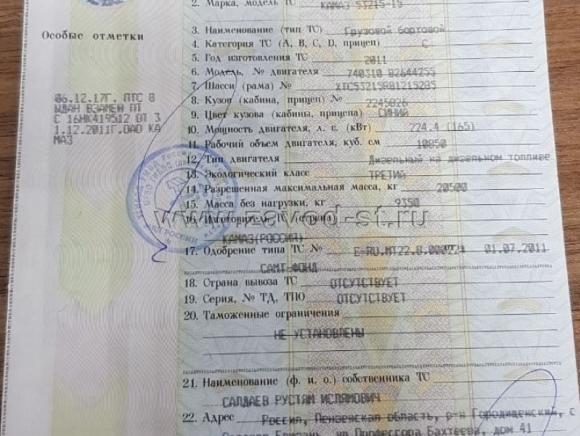 2. Марка, модель ТС КАМАЗ 53215-15
Особые отметки
3. Наименование (тип ТС) Грузовой бортовой
4. Категория ТС (А, В, С, D, прицеп) С
5. Год изготовления ТС 2011
6. Модель, № двигателя 740310 82644255
7. Шасси (рама) №
8. Кузов (кабина, прицеп) № 2245826
9. Цвет кузова (кабины, прицепа) СИНИЙ
10. Мощность двигателя, л. с. (кВт) 224.4 (165)
11. Рабочий объем двигателя, куб. см 10850
12. Тип двигателя Дизельный на дизельном топливе
13. Экологический класс ТРЕТИЙ
14. Разрешенная максимальная масса, кг 20500
15. Масса без нагрузки, кг 9350
16. Изготовитель ТС (страна)
КАМАЗ(РОССИЯ)
17. Одобрение типа ТС № 01.07.2011
САМТ-ФОНД
18. Страна вывоза ТС ОТСУТСТВУЕТ
19. Серия, № ТД, ТПО ОТСУТСТВУЕТ
20. Таможенные ограничения
НЕ УСТАНОВЛЕНЫ
21. Наименование (ф. и. о.) собственника ТС
САЛДАЕВ РУСТЯМ ИСЛЯМОВИЧ
22. Адрес Россия, Пензенская область, р-н Городищенский, с
ул Профессора Бахтеева, дом 41
06.12.17Г. ПТС В
ЫДАН ВЗАМЕН ПТ
С 16МК419512 ОТ 3
1.12.2011Г.ОАО КА
МАЗ